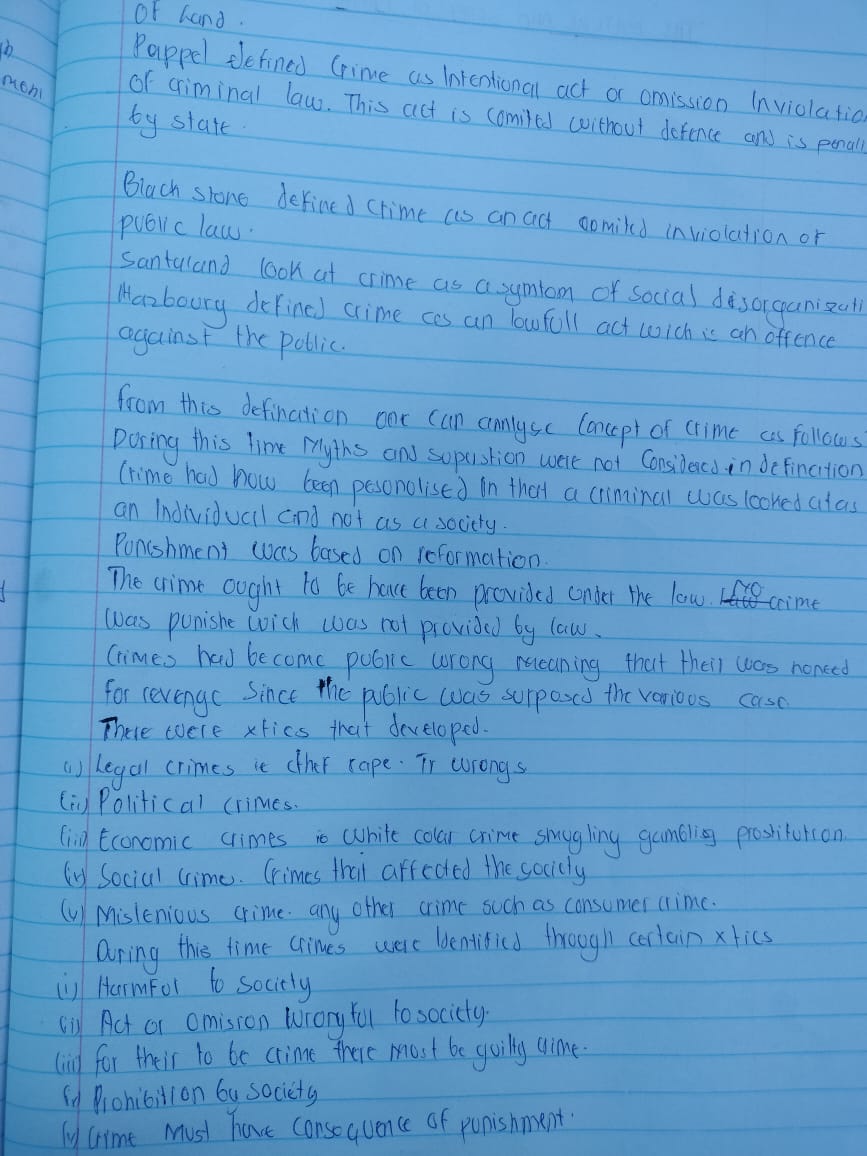 of hand.
Pappel defined Crime as Intentional act or omission Inviolatio
of criminal law. This act is comited without defence and is penall
by state.
Blach stone defined crime as an act comited inviolation of
public law.
Santuland look at crime as a symtom of social disorganizati
Hazboury defined crime as an lowfull act wich is an offence
against the public.
from this defination one can annlyse Concept of crime as follows
During this time Myths and supustion were not Considered in defincition
Crime had how been pesonolised in that a criminal was looked at as
an Individual and not as a society.
Punishment was based on reformation.
The crime ought to be have been provided under the law. NO crime
was punishe wich was not provided by law.
Crimes had become public wrong meaning that their was noneed
for revenge Since the public was surposed the various case
There were xtics that developed.
(i) Legal crimes ie rape. wrongs
(ii) Political crimes.
(iii) Economic crimes white colar crime smugling gambling prostitution
(iv) Social crime. Crimes that affected the society
(v) Mislenious crime. any other crime such as consumer crime.
During this time crimes were Identified through certain xtics
(i) HarmFul to society
(ii) Act or omision Wrongful to society.
(iii) for their to be crime there must be guilty crime.
(iv) Prohibition by society
(v) Crime Must have consequence of punishment.